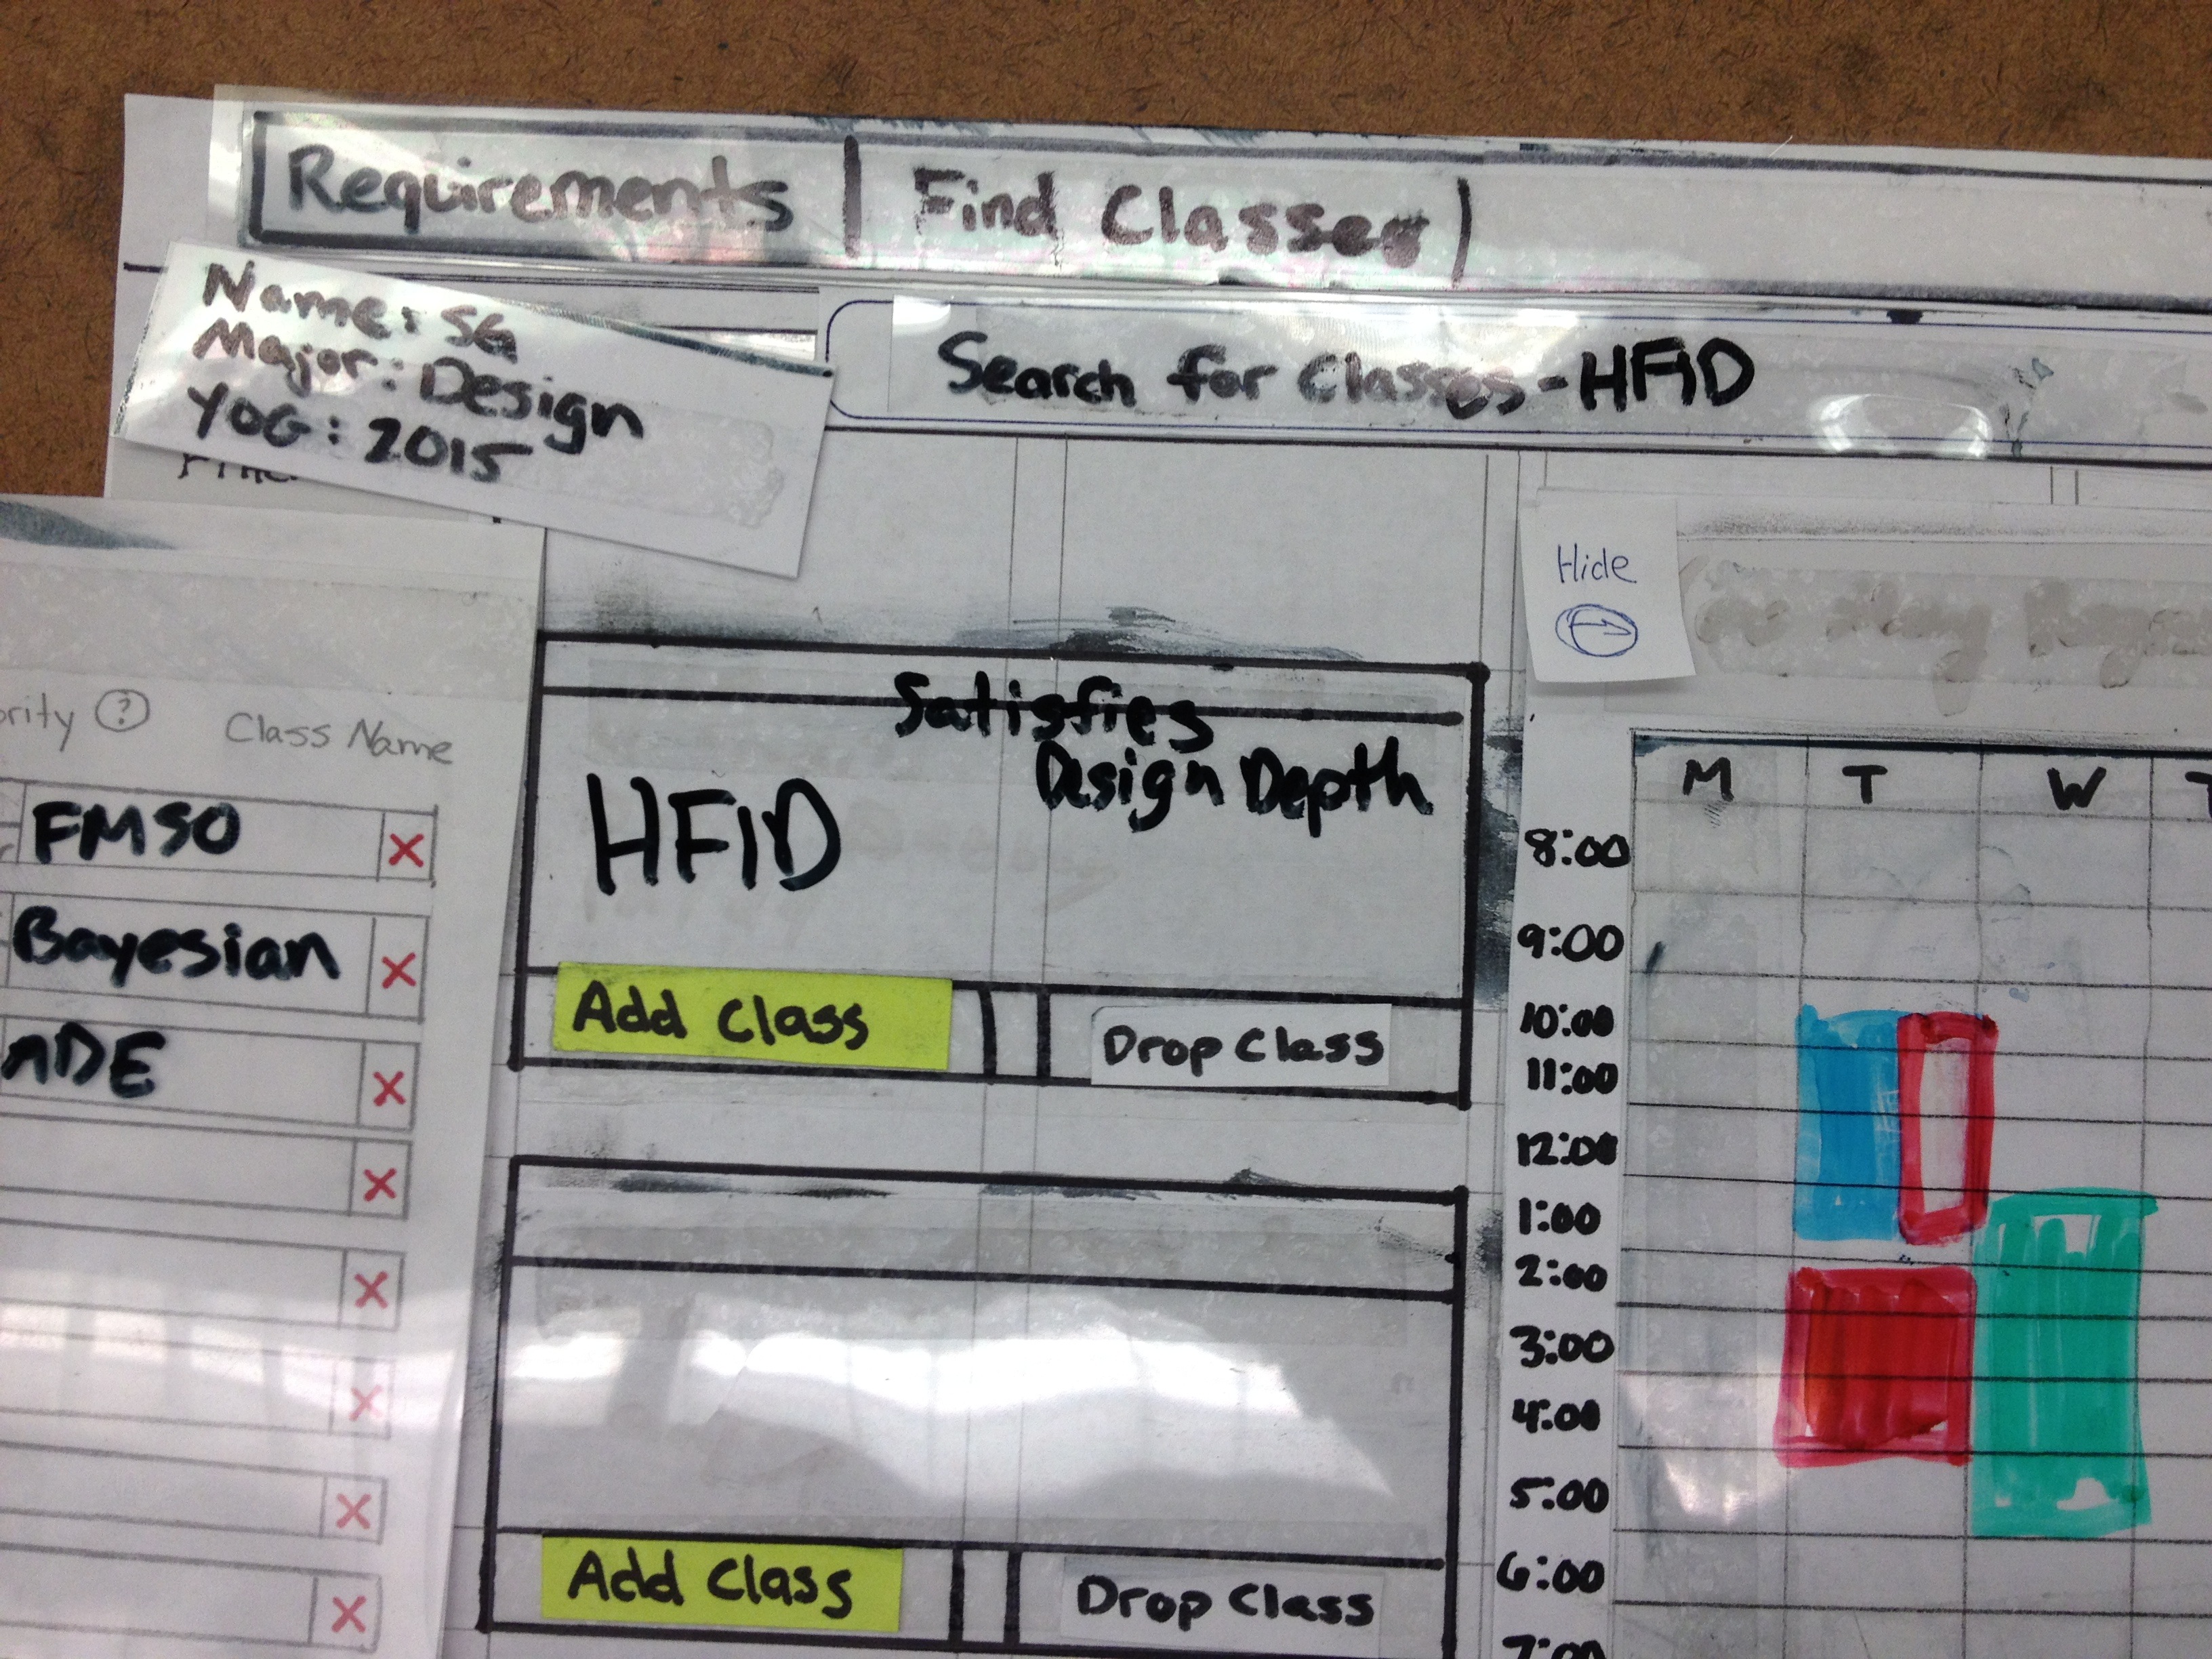 Requirements | Find Classes |
Name: SG
Major: Design
YOG: 2015
Search for Classes - HFID
Hide
Class Name
FMSO X
Bayesian X
X
X
X
X
X
X
Satisfies
Design Depth
HFID
Add Class
Drop Class
Add Class
Drop Class
M T W T
8:00
9:00
10:00
11:00
12:00
1:00
2:00
3:00
4:00
5:00
6:00
7:00